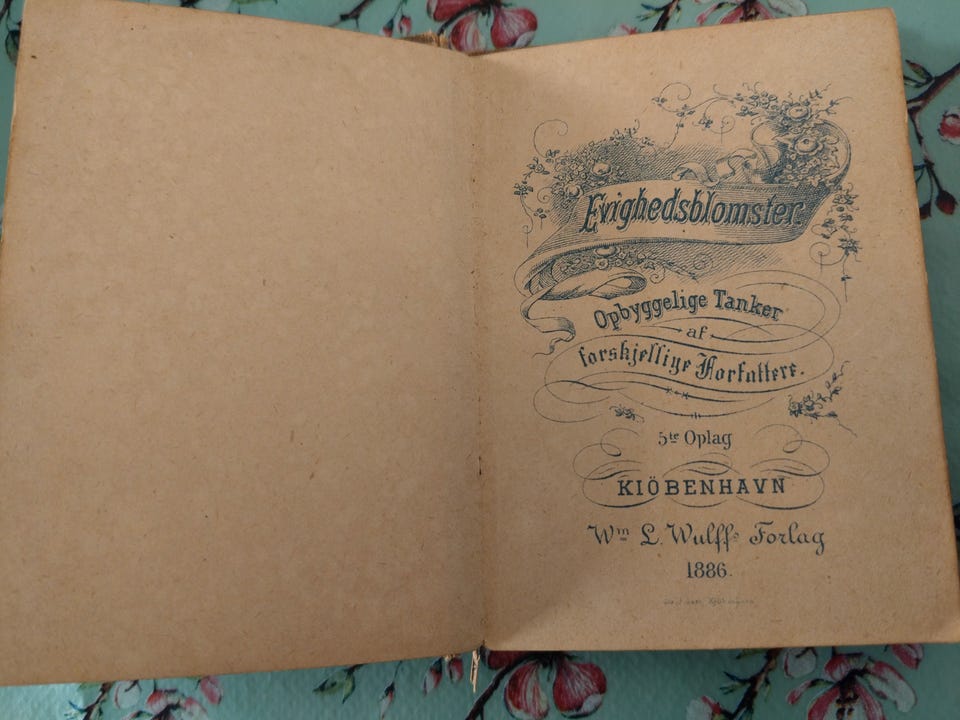 Evighedsblomster.
Opbyggelige Tanker
af
forskjellige Forfattere.
5te Oplag
KIÖBENHAVN
Wm L. Wulffs Forlag
1886.